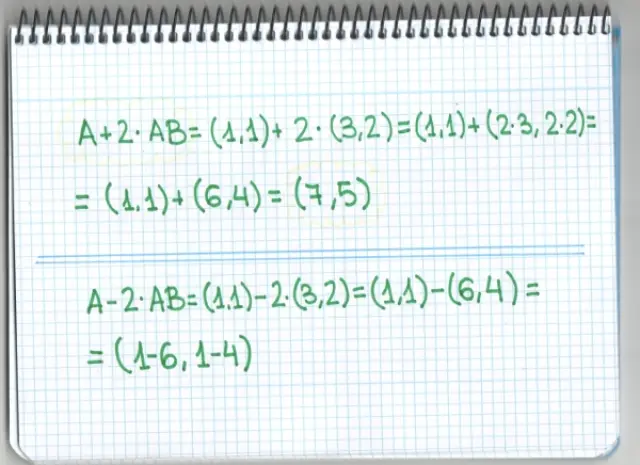 A+2·AB=(1,1)+ 2·(3,2)=(1,1)+(2·3, 2·2)=
= (1,1)+(6,4)= (7,5)
A-2·AB=(1,1)-2·(3,2)=(1,1)-(6,4)=
= (1-6, 1-4)